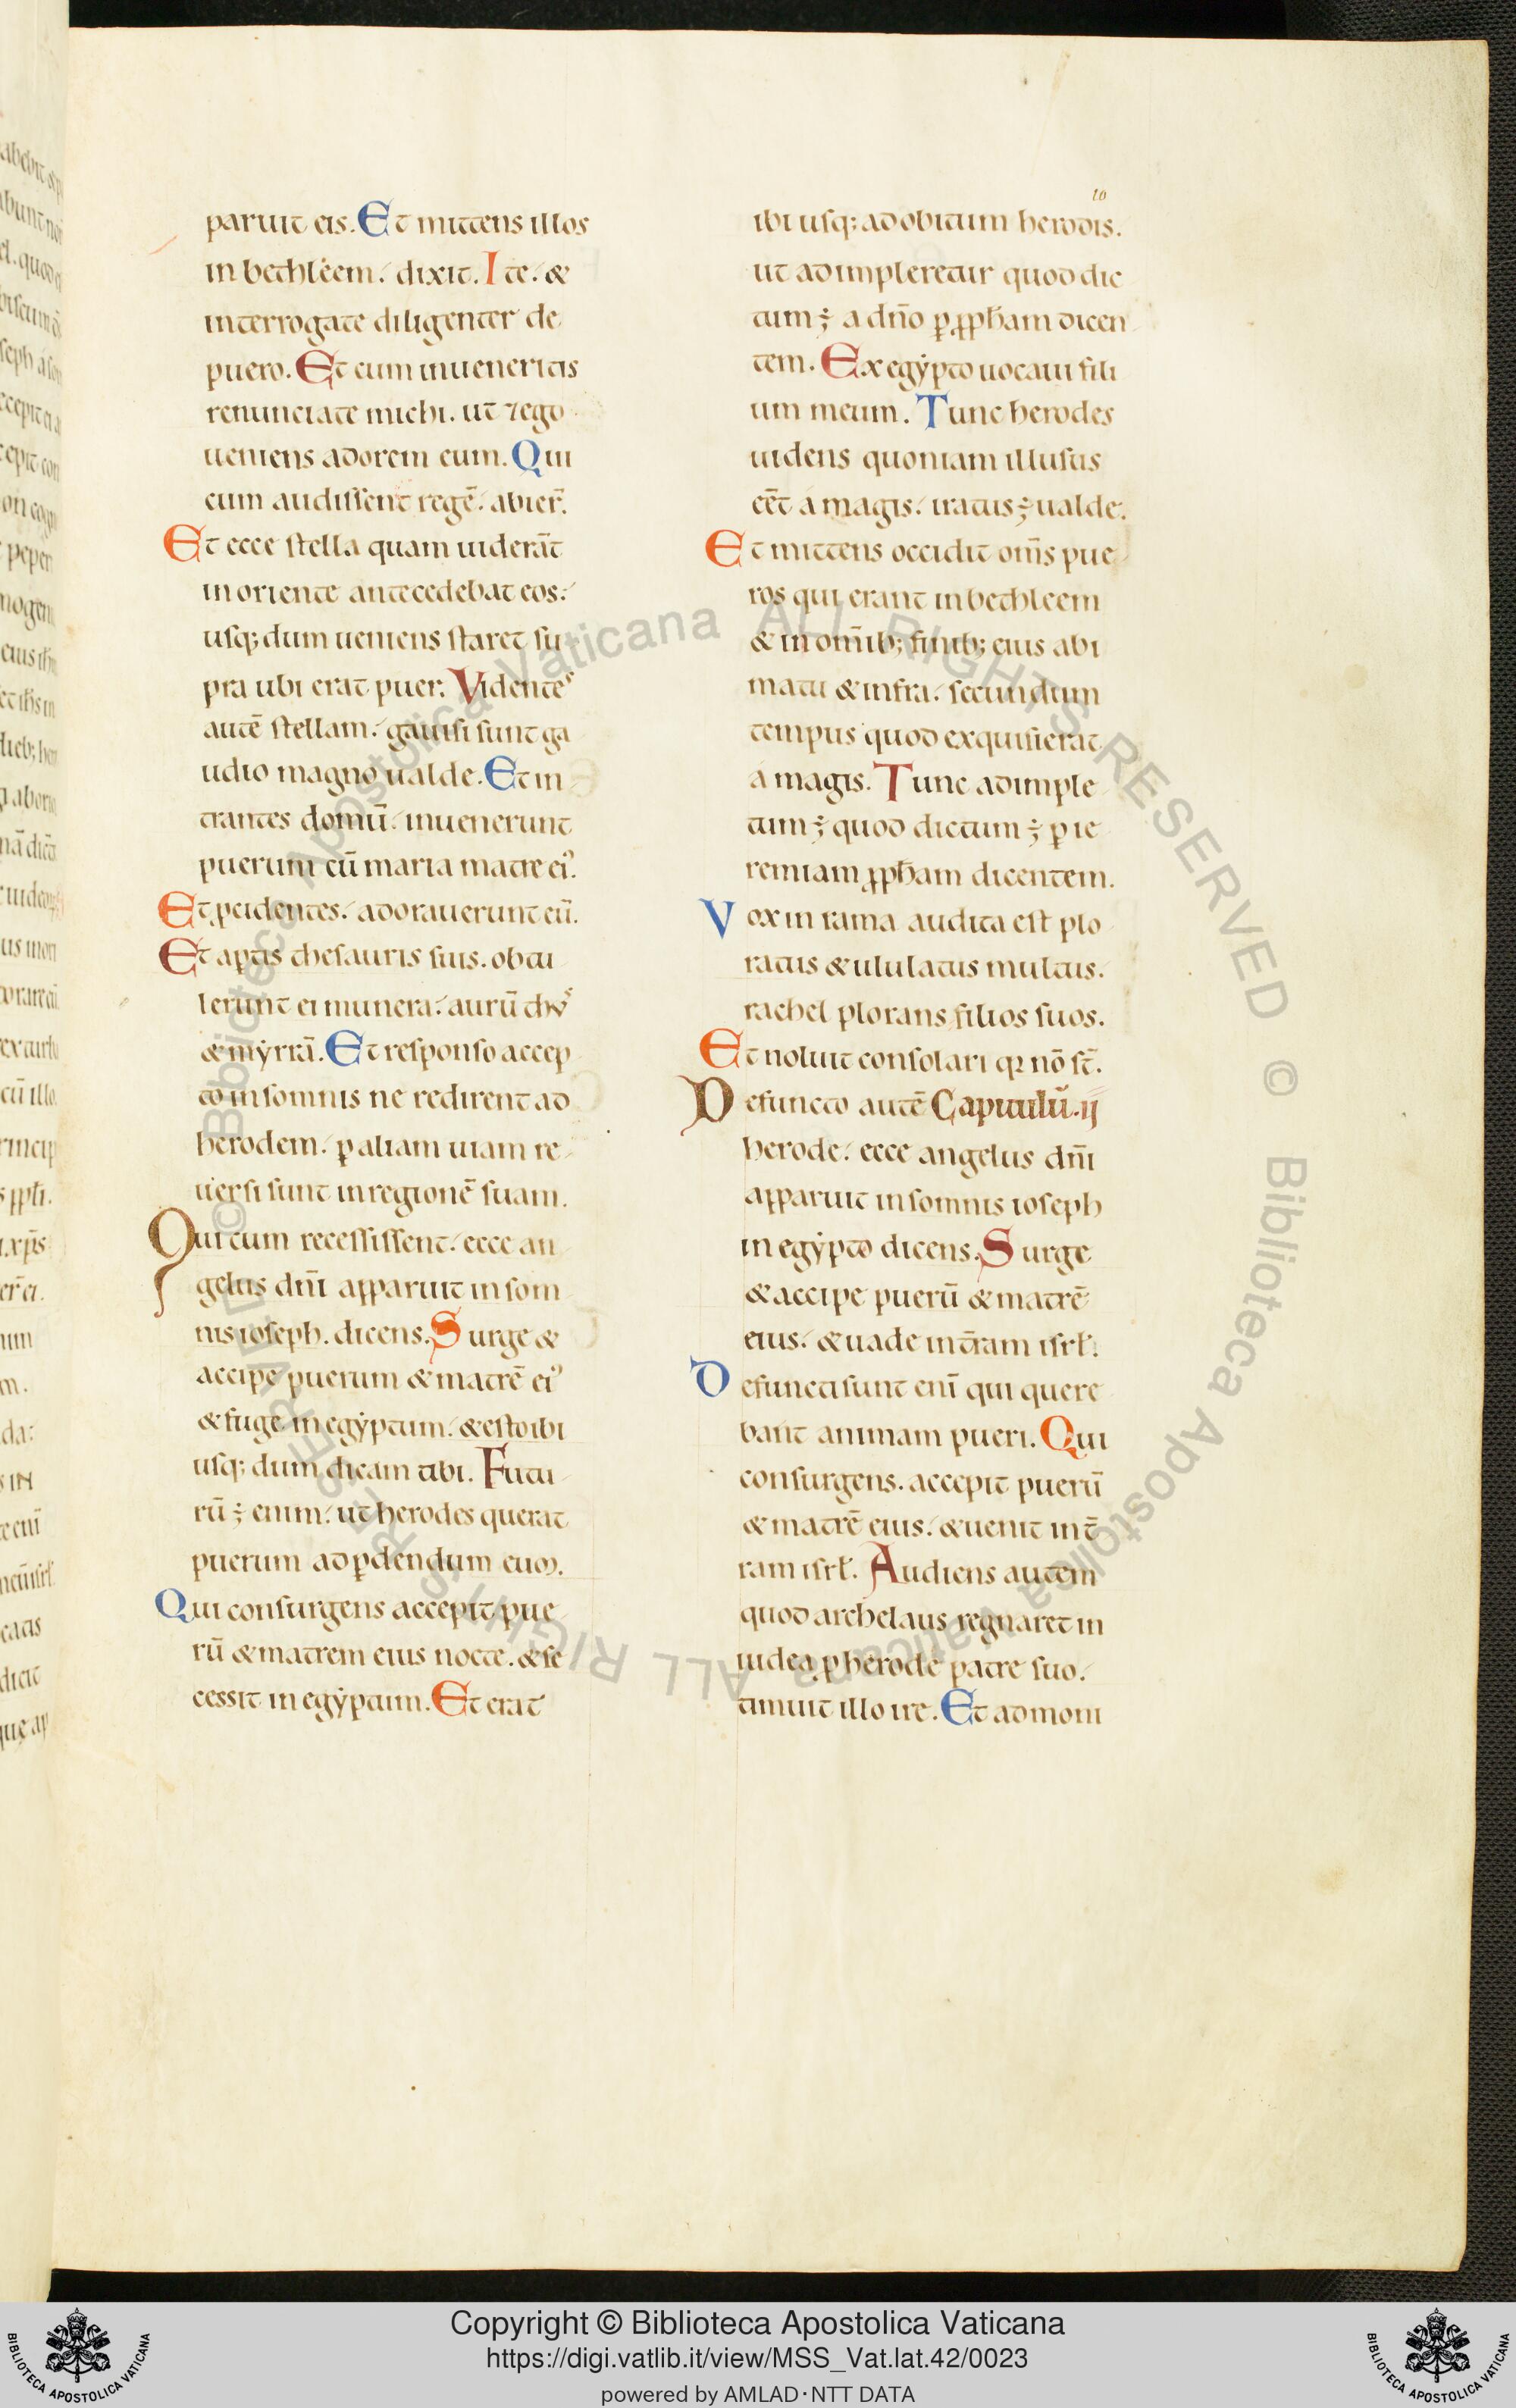 10
paruit eis. Et mittens illos
in bethleem. dixit. Ite. &
interrogate diligenter de
puero. Et cum inueneritis
renunciate michi. ut ⁊ ego
ueniens adorem eum. Qui
cum audissent regē. abier̄.
Et ecce stella quam uiderāt
in oriente antecedebat eos.
usq; dum ueniens staret su
pra ubi erat puer. Videntes
autē stellam. gauisi sunt ga
udio magno ualde. Et in
trantes domū. inuenerunt
puerum cū maria matre eiꝰ.
Et ꝓcidentes. adorauerunt eū.
Et aꝑtis thesauris suis. obtu
lerunt ei munera. aurū thꝰ
& myrrā. Et responso accep
to in somnis ne redirent ad
herodem. ꝑ aliam uiam re
uersi sunt in regionē suam.
Qui cum recessissent. ecce an
gelus dn̄i apparuit in som
nis ioseph. dicens. Surge &
accipe puerum & matrē eiꝰ
& fuge in egyptum. & esto ibi
usq; dum dicam tibi. Futu
rū ÷ enim. ut herodes querat
puerum ad ꝑdendum eum.
Qui consurgens accepit pue
rū & matrem eius nocte. & se
cessit in egyptum. Et erat
ibi usq; ad obitum herodis.
ut adimpleretur quod dic
tum ÷ a dn̄o ꝑ ꝓpham dicen
tem. Ex egypto uocaui fili
um meum. Tunc herodes
uidens quoniam illusus
eēt a magis. iratus ÷ ualde.
Et mittens occidit om̄s pue
ros qui erant in bethleem
& in om̄ib; finib; eius a bi
matu & infra. secundum
tempus quod exquisierat
a magis. Tunc adimple
tum ÷ quod dictum ÷ ꝑ ie
remiam ꝓpham dicentem.
Vox in rama audita est plo
ratus & ululatus multus.
rachel plorans filios suos.
Et noluit consolari qꝛ nō st̄.
Defuncto autē Capitulū. ij
herode. ecce angelus dn̄i
apparuit in somnis ioseph
in egypto dicens. Surge
& accipe puerū & matrē
eius. & uade in t̄ram isrł.
Defuncti sunt enī qui quere
bant animam pueri. Qui
consurgens. accepit puerū
& matrē eius. & uenit in t̄
ram isrł. Audiens autem
quod archelaus regnaret in
iudea ꝓ herode patre suo.
timuit illo ire. Et admoni
Copyright © Biblioteca Apostolica Vaticana
https://digi.vatlib.it/view/MSS_Vat.lat.42/0023
powered by AMLAD·NTT DATA